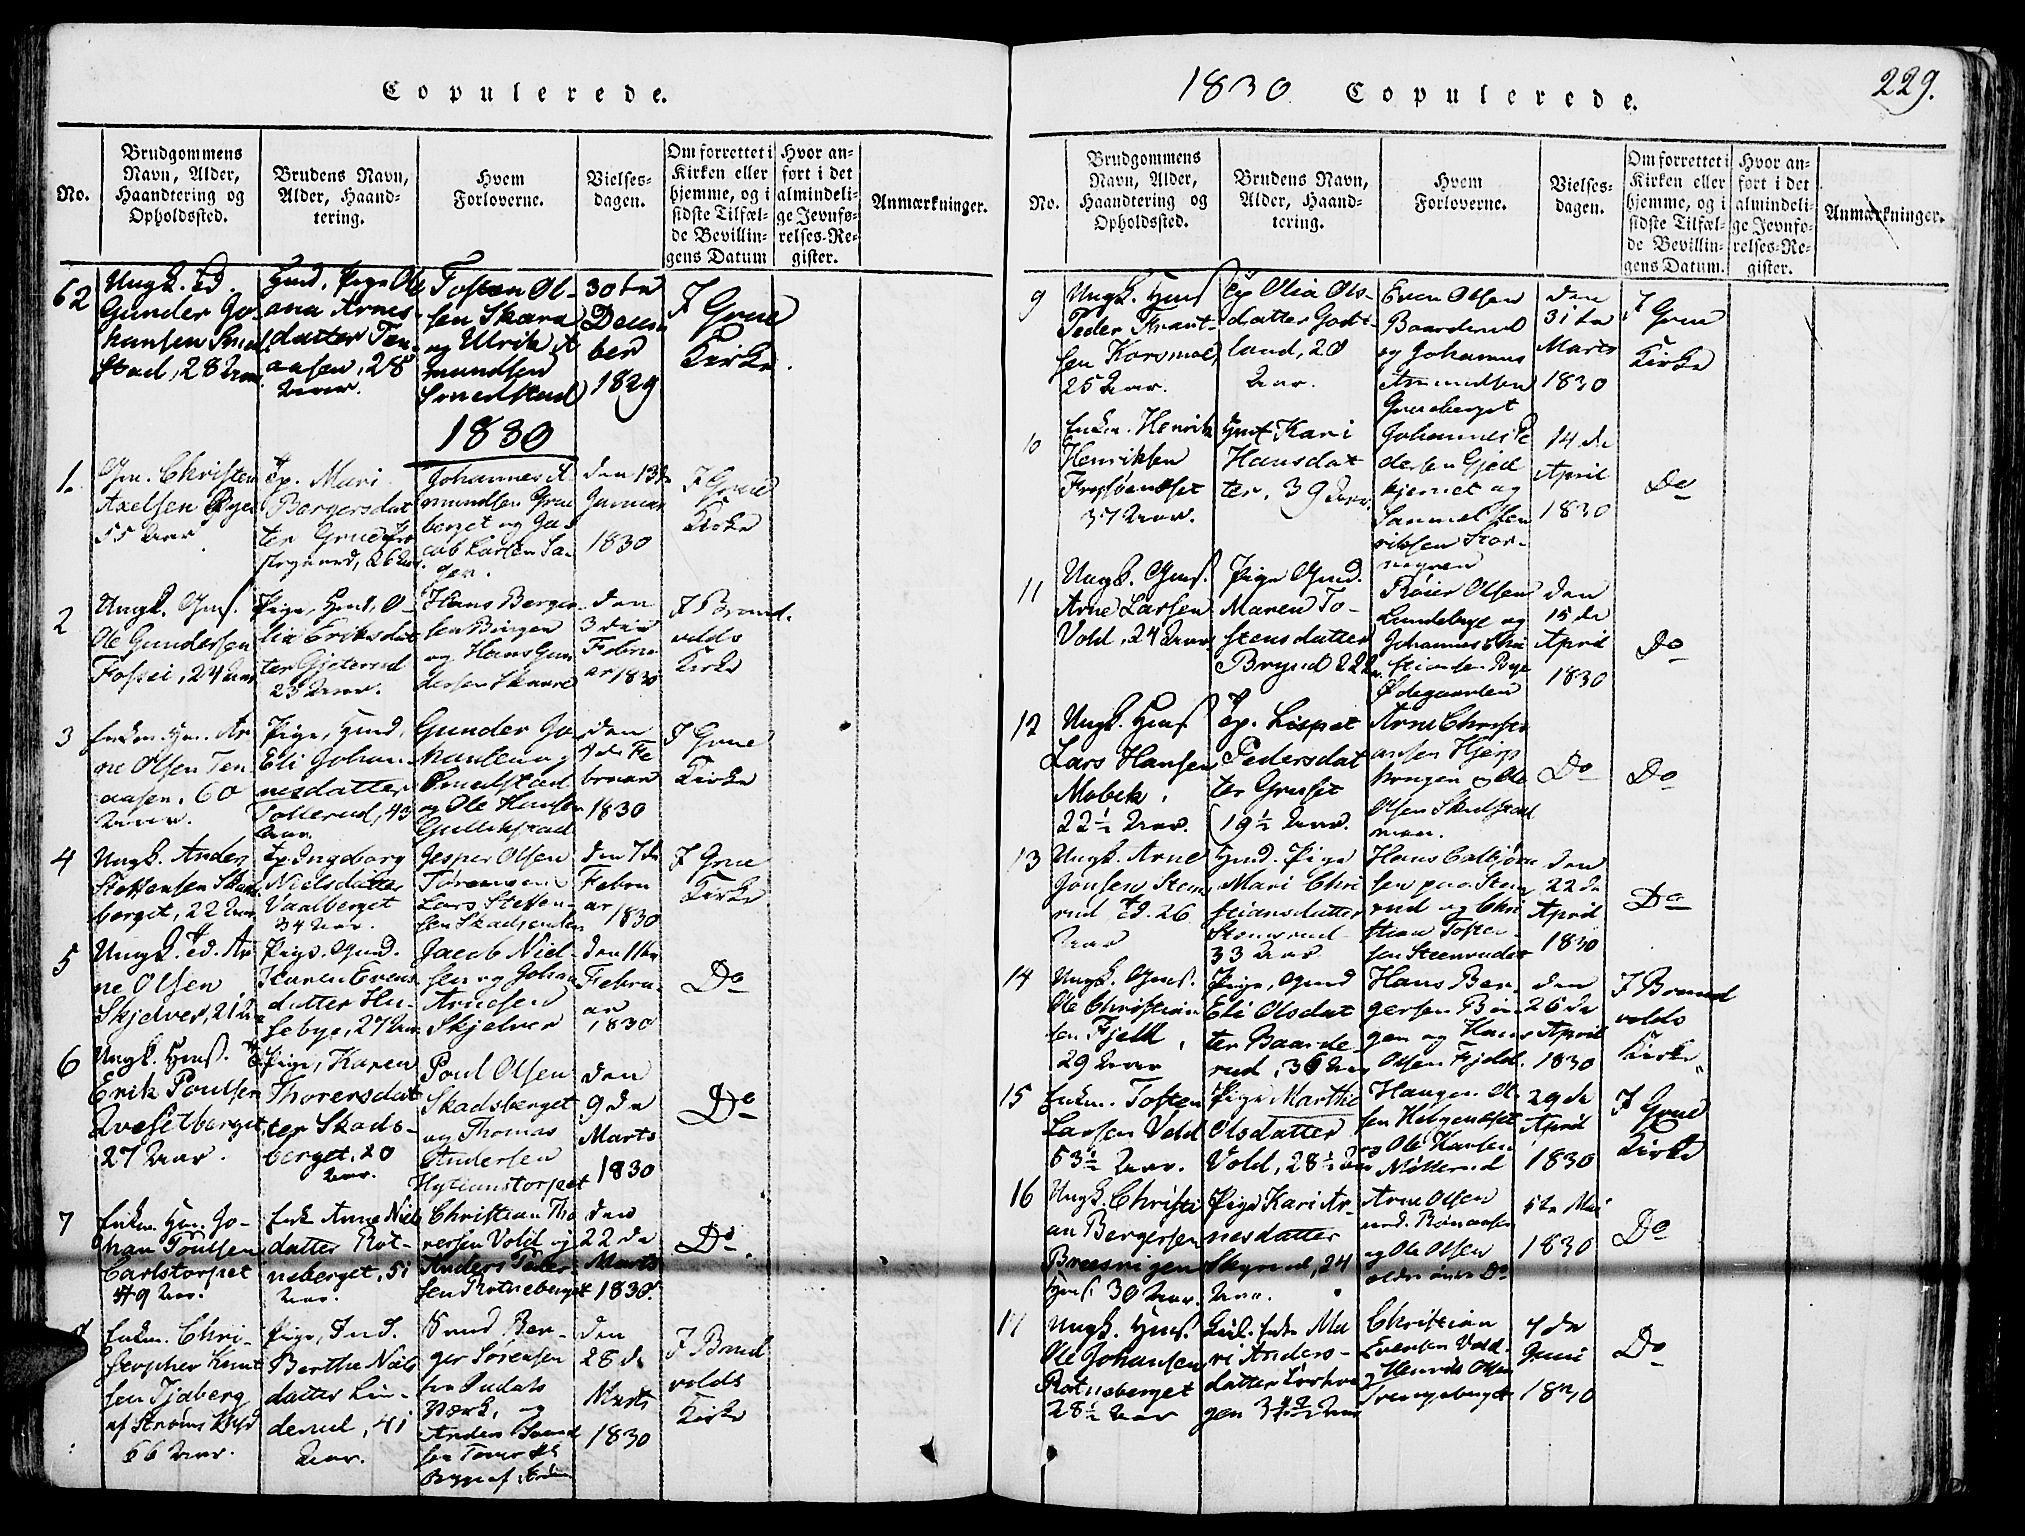 Copulerede.
No.
Brudgommens
Navn, Alder,
Haandtering og
Opholdssted.
Brudens Navn,
Alder, Haand-
tering.
Hvem
Forloverne.
Vielses-
dagen.
Om forrettet i
Kirken eller
hjemme, og i
sidste Tilfæl-
de Bevillin-
gens Datum
Hvor an-
ført i det
almindeli-
ge Jevnfø-
relses-Re-
gister.
Anmærkninger.
62
Ungk.
Gunder Jo-
hansen
stad, 28 Aar
Pige Ol
ana Arnes
datter Ten-
aasen, 28
Aar.
Tosten Ol-
sen Skara
og Ulrik A
mundsen
Smedstad
30te
Decem
ber
1829
I Grue
Kirke.
1830
1.
Gm. Christen
Axelsen Bye
55 Aar
Ep. Mari
Borgersdat
ter Grue
26
Johannes A
mundsen Grue
berget og Ja-
cob Larsen Sa
ger.
den 13de
Januar
1830
I Grue
Kirke
2
Ungk. Gms.
Ole Gundersen
Fossei, 24 Aar
Pige, Gmd, O-
lia Eriksdat
ter Gjeterud
23 Aar.
Hans Berger
sen Bingen
og Hans Gun
dersen Skaare
den
3die
Febru
ar 1830
I Brand-
volds
Kirke
3
Enkm. Hm. Ar
ne Olsen Ten
aasen, 60
Aar.
Pige, Hmd,
Eli Johan-
nesdatter
Tollerud, 43
Aar.
Gunder Jo
hansen
Smedstad
og Ole Hansen
Gullikstad
den
4de Fe
bruar
1830
I Grue
Kirke
4
Ungk. Anders
Steffensen Skads
berget, 22 Aar
Ep Ingeborg
Nielsdatter
Vaalberget
34 Aar.
Jesper Olsen
Lars Steffen-
sen
den 7de
Febru
ar
1830
I Grue
Kirke
5
Ungk. Ar
ne Olsen
Skjelver, 21 Aar
Pige. Gmd.
Karen Evens
datter Hu-
sebye, 27 Aar
Jacob Niel-
sen og Johan
Arnesen
Skjelver
den 11te
Febru-
ar
1830
Do
6
Ungk. Hms.
Erik Poulsen
Qvesetberget
27 Aar.
Pige, Karen
Thorersdat
ter Skads-
berget, 20
Aar.
Poul Olsen
Skadsberget
og Thomas
Andersen
den
9de
Marts
1830
Do
7
Enkm. Hm. Jo-
han Poulsen
Carlstorpet
49 Aar.
Enk Anne Niels
datter Rot-
neberget, 51
Aar.
Christian Tho
rersen Vold og
Anders Peder-
sen Rotneberget
den
22de
Marts
1830.
Do
Enkm. Chri-
stopher Knut
sen Tjaberg
af Strøms
66 Aar.
Pige, Ind.
Berthe Niels
datter Lin-
derud, 41
Aar.
Svend Ber-
ger Sørensen
Værk, og
Anders Svend
sen
den
28de
Marts
1830
I Brand
volds
Kirke
1830.
Copulerede.
229.
No.
Brudgommens
Navn, Alder,
Haandtering og
Opholdssted.
Brudens Navn,
Alder, Haand-
tering.
Hvem
Forloverne.
Vielses-
dagen.
Om forrettet i
Kirken eller
hjemme, og i
sidste Tilfæl-
de Bevillin-
gens Datum.
Hvor an-
ført i det
almindeli-
ge Jevnfø-
relses-Re-
gister.
Anmærkninger.
9
Ungk. Hms
Peder Knut-
sen Korsmoe,
25 Aar.
Ep Olia Ols-
datter God-
land, 20
Aar.
Even Olsen
Baarderud
og Johannes
Amundsen
Grueberget
den
31te
Marts
1830
I Grue
Kirke
10
Enkm. Henrik
Henriksen
37 Aar.
Kari
Hansdat
ter, 39 Aar.
Johannes Pe
dersen Gjed
tjernet og
Samuel Hen
riksen
14de
April
1830
Do
11
Ungk. Gms.
Arne Larsen
Vold, 24 Aar
Pige Gmd.
Maren To-
stensdatter
Brynd 22
Røier Olsen
Lundebye og
Johannes Chri
stiansen Bye
Ødegaarden
den
15de
April
1830
Do
12
Ungk. Hms
Lars Hansen
Mobek,
22½ Aar.
Ep. Lispet
Pedersdat
ter Gruset
19½ Aar.
Arne Christi
ansen Hjerp
kongen og Ole
Olsen Skulstad
moen.
Do
Do
13
Ungk. Arne
Jonsen Stem
rud 26
Aar
Hmd. Pige
Mari Chri
stiansdatter
Stemsrud
33 Aar
Hans Colbjørn
sen paa Stem
rud og Chri
stian Tosten-
sen
den
22de
April
1830
Do
14
Ungk. Gms.
Ole Christian
sen Fjeld,
29 Aar
Pige, Gmd
Eli Olsdat
ter Baarde-
rud, 36 Aar
Hans Ber-
gersen Bin-
gen og Hans
Olsen Fjeld
den
26de
April
1830
I Brand
volds
Kirke
15
Enkm. Tosten
Larsen Vold
53½ Aar.
Pige Marthe
Olsdatter
Vold, 28½ Aar
Haagen Ol
sen Helgesæt
og Ole Hansen
Møllerud
29de
April
1830
I Grue
Kirke
16
Ungk. Christi
an Bergersen
Bræsvigen
Hms. 30 Aar.
Pige Kari Ar-
nesdatter
Skyrud, 24
Aar.
Arne Olsen
og Ole Olsen
5te Mai
1830
Do
17
Ungk. Hms.
Ole Johansen
Rotneberget
28½ Aar
Ma
ri Anders-
datter
gen
Christian
Evensen Vold
og Henrik Olsen
7de
Juni
1830
Do